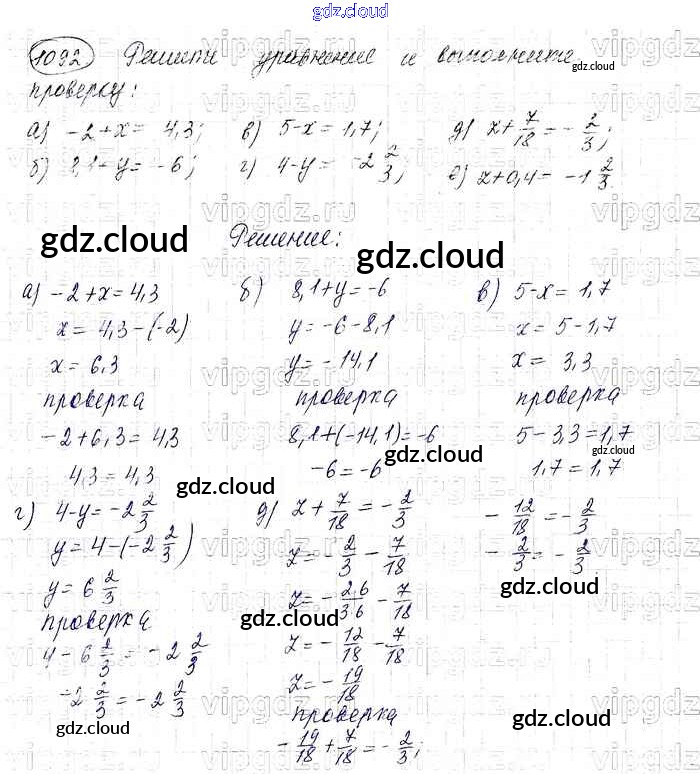 gdz.cloud
1092 Решити уравнение и выполните
gdz.cloud
проверку:
а) -2+x= 4,3; в) 5-x=1,7; д) z+7/18=-2/3;
б) 8,1+y=-6; г) 4-y= -2 2/3; е) z+0,4= -1 2/3.
gdz.cloud Решение: gdz.cloud
а) -2+x=4,3 б) 8,1+y=-6 в) 5-x=1,7
x= 4,3-(-2) y=-6-8,1 x= 5-1,7
x= 6,3 y= -14,1 x= 3,3
проверка проверка проверка
-2+6,3=4,3 8,1+(-14,1)=-6 5-3,3=1,7
4,3=4,3 -6=-6 1,7=1,7
gdz.cloud gdz.cloud
г) 4-y=-2 2/3 д) z+7/18=-2/3 -12/18=-2/3
y=4-(-2 2/3) z=-2/3-7/18 -2/3=-2/3
y=6 2/3 z=-2·6/3·6-7/18
gdz.cloud gdz.cloud
проверка z=-12/18-7/18
4-6 2/3=-2 2/3 z=-19/18
-2 2/3=-2 2/3 проверка
gdz.cloud gdz.cloud
-19/18+7/18=-2/3;
vipgdz.ru